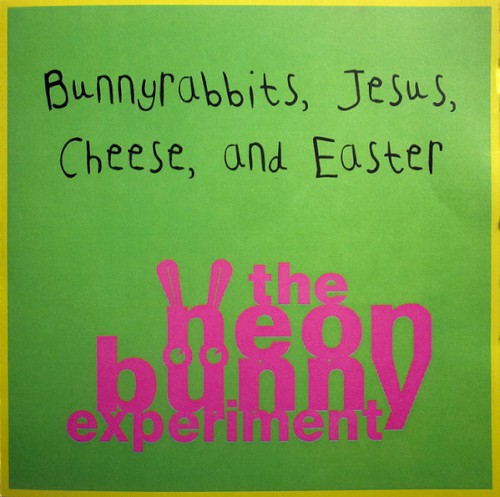 Bunnyrabbits, Jesus,
Cheese, and Easter
the
neon
bunny
experiment